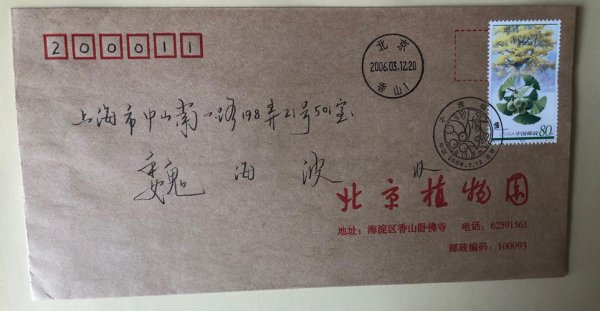 200011
北京
2006.03.12.20
香山1
中国邮政 80
上海市中山南一路198弄21号501室
魏海波 收
中国 2006.3.12 北京
北京植物园
地址：海淀区香山卧佛寺 电话：62591561
邮政编码：100093